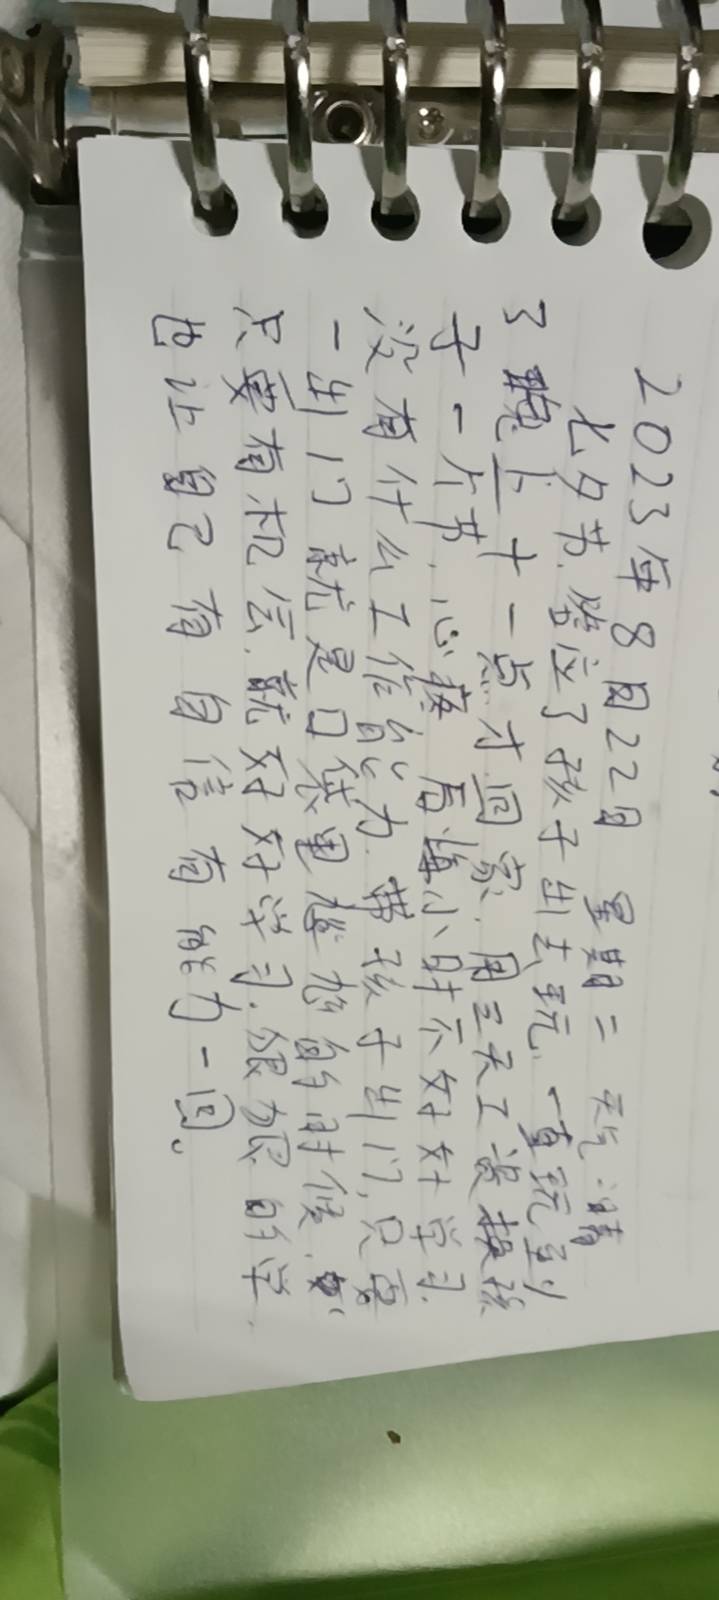 2023年8月22日 星期二 天气:晴
七夕节.答应了孩子出去玩.一直玩到
了晚上十一点才回家.用三天工资换孩
子一个节.心疼.后悔小时不好好学习.
没有什么工作能力.带孩子出门,只要
一出门就是口袋里尴尬的时候.
只要有机会.就好好学习.狠狠的学.
也让自己有自信有能力一回。